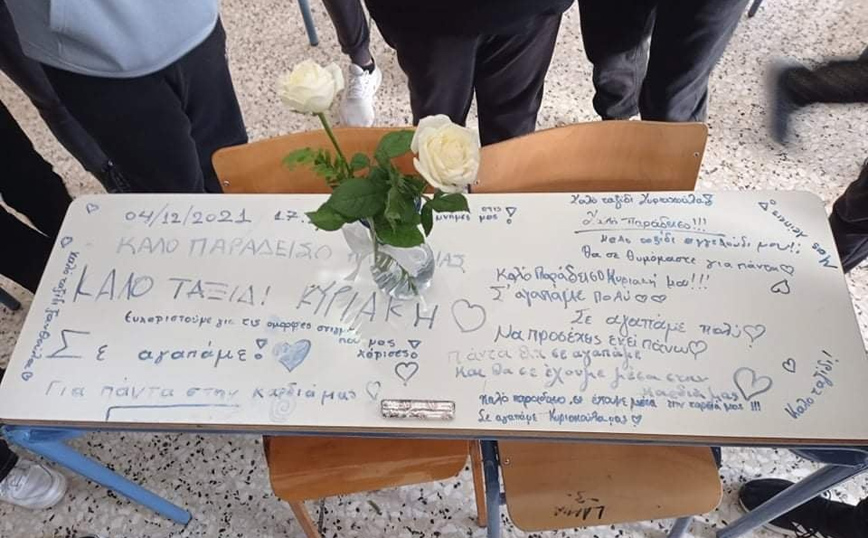 04/12/2021 17.
μνήμες μας!
ΚΑΛΟ ΠΑΡΑΔΕΙΣΟ
ΚΑΛΟ ΤΑΞΙΔΙ ΚΥΡΙΑΚΗ
Ευχαριστούμε για τις όμορφες στιγμές
που μας χάρισες
Σε αγαπάμε!
Για πάντα στην καρδιά μας
Καλό ταξίδι
Καλό ταξίδι Κυριακούλα
Καλό παράδεισο!!!
Καλό ταξίδι αγγελούδι μου!!
θα σε θυμόμαστε για πάντα
Μας λείπεις
Καλό Παράδεισο Κυριακή μου!!!
Σ' αγαπάμε πολύ
Σε αγαπάμε πολύ
Να προσέχεις εκεί πάνω
Πάντα θα σε αγαπάμε
και θα σε έχουμε μέσα στην
καρδιά μας
Καλό παράδεισο, σε έχουμε μέσα στην καρδιά μας!!!
Σε αγαπάμε Κυριακούλα μας
Καλό ταξίδι!